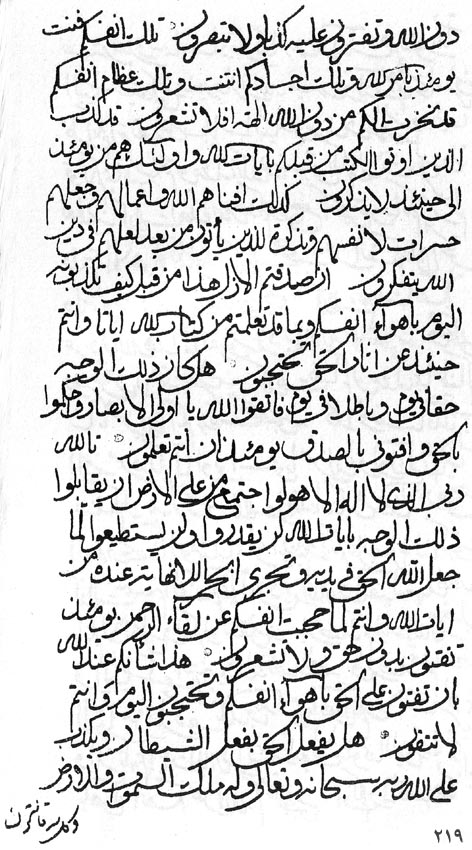 دون الله وتفترون عليه كذبا ولا تبصرون تلك انفسكم فنت
يومئذ بامر الله وتلك اجسادكم انتنت وتلك عظام انفسكم
قد نخرت الكم من دون الله اله افلا تشعرون قد كذب
الذين اوتوا الكتب من قبلكم بايات الله واولئك هم من يومئذ
الى حينئذ لا يذكرون كذلك افناهم الله واعمالهم وجعلهم
حسرات لانفسهم وتذكرة للذين يأتون من بعد لعلهم في دين
الله يتفكرون ان صدقتم الاول هذا من قبل كيف تكذبونه
اليوم باهواء انفسكم وبما قد تعلمتم من كتاب الله اياتا وانتم
حينئذ عن اثار الحق تحتجبون هل كان ذلك الوجه
حقا في يوم وباطلا في يوم فاتقوا الله يا اولي الابصار وحكموا
بالحق وافتوني بالصدق يومئذ ان انتم تعلمون تالله
ربي الذي لا اله الا هو لو اجتمع من على الارض ان يقابلوا
ذلك الوجه بايات الله لن يقدروا ولن يستطيعوا لما
جعل الله الحق في يديه وتجري ابحار لانهاية عنده من
ايات الله وانتم لما حجبت انفسكم عن لقاء الرحمن يومئذ
تفتون بدون حق ولا تشعرون هذا شانكم عند الله
بان تفتون على الحق باهواء انفسكم وتحتجبون اليوم وانتم
لا تتقون هل يفعل الحق بفعل الشيطان ويكذب
على الله ربه سبحانه وتعالى وله ملك السموات والارض
وكل له قانتون
٢١٩